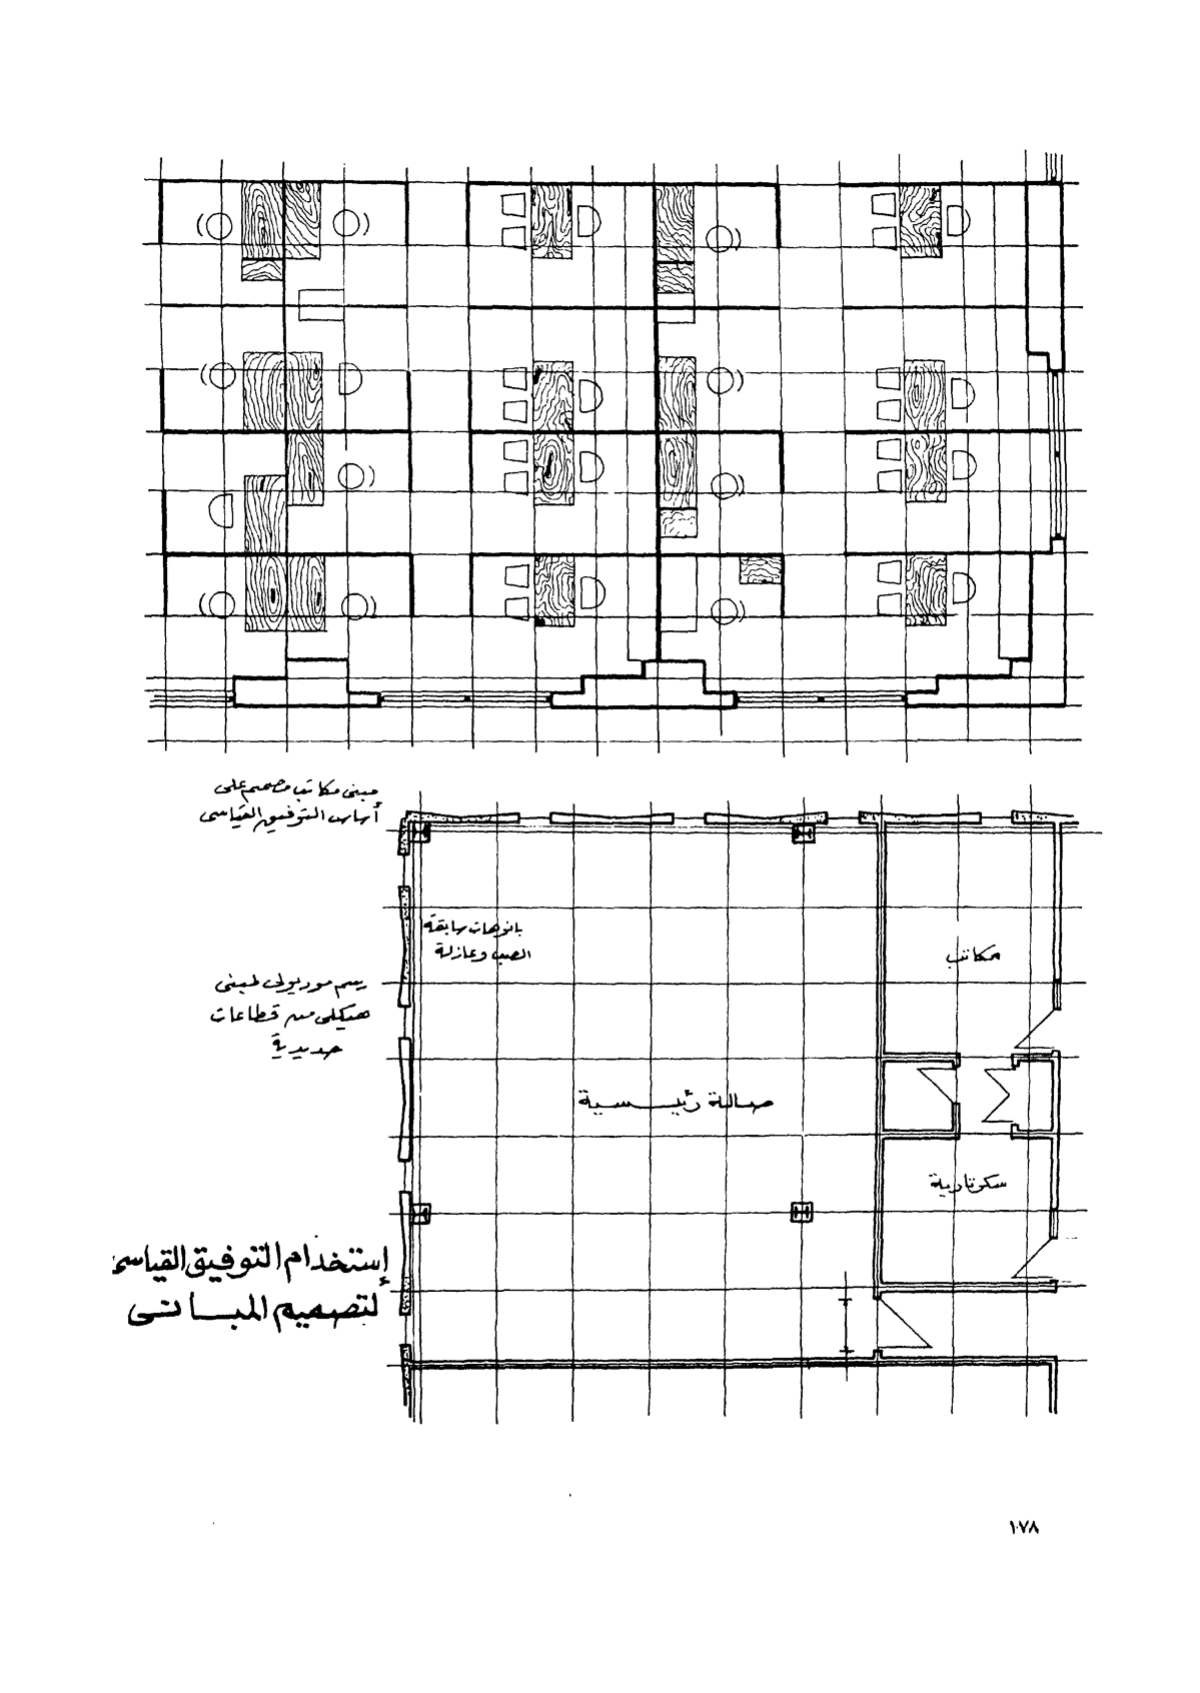 مبنى مكاتب مصمم على
أساس التوفيق القياسى
بانوهات سابقة
الصب وعازلة
مكاتب
رسم موديولى لمبنى
هيكلى من قطاعات
حديدية
صالة رئيسية
سكرتارية
إستخدام التوفيق القياسى
لتصميم المبانى
١٠٧٨